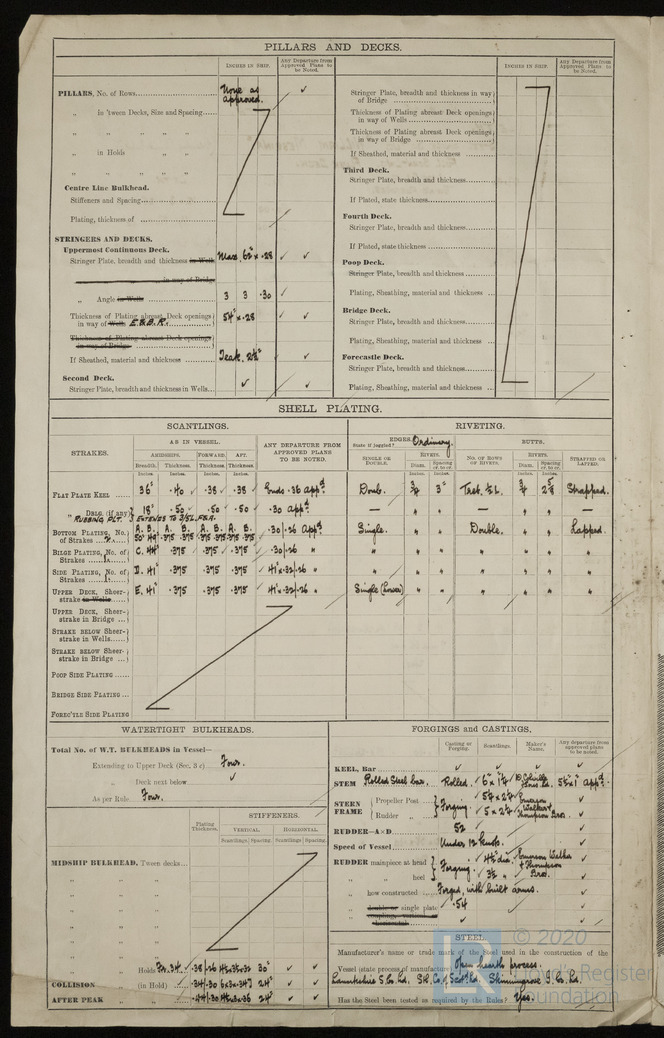 PILLARS AND DECKS.
INCHES IN SHIP.
Any Departure from Approved Plans to be Noted.
PILLARS, No. of Rows
None as approved.
✓
„ in 'tween Decks, Size and Spacing
„ „ „ „
„ in Holds „ „
„ „ „ „
Centre Line Bulkhead.
Stiffeners and Spacing
Plating, thickness of
STRINGERS AND DECKS.
Uppermost Continuous Deck.
Stringer Plate, breadth and thickness in Wells
in way of Bridge
„ Angle in Wells 3 3 .30 ✓
Thickness of Plating abreast Deck openings in way of Wells E.&B.R. 54" x .28 ✓ ✓
Thickness of Plating abreast Deck openings in way of Bridge
If Sheathed, material and thickness Teak. 2½" ✓
Second Deck.
Stringer Plate, breadth and thickness in Wells ✓ ✓
INCHES IN SHIP.
Any Departure from Approved Plans to be Noted.
Stringer Plate, breadth and thickness in way of Bridge
Thickness of Plating abreast Deck openings in way of Wells
Thickness of Plating abreast Deck openings in way of Bridge
If Sheathed, material and thickness
Third Deck.
Stringer Plate, breadth and thickness
If Plated, state thickness
Fourth Deck.
Stringer Plate, breadth and thickness
If Plated, state thickness
Poop Deck.
Stringer Plate, breadth and thickness
Plating, Sheathing, material and thickness
Bridge Deck.
Stringer Plate, breadth and thickness
Plating, Sheathing, material and thickness
Forecastle Deck.
Stringer Plate, breadth and thickness
Plating, Sheathing, material and thickness
SHELL PLATING.
SCANTLINGS.
RIVETING.
STRAKES.
AS IN VESSEL.
AMIDSHIPS. FORWARD. AFT.
Breadth. Thickness. Thickness. Thickness.
Inches. Inches. Inches. Inches.
ANY DEPARTURE FROM APPROVED PLANS TO BE NOTED.
EDGES. Ordinary.
State if joggled?
SINGLE OR DOUBLE.
RIVETS.
Diam. Spacing cr. to cr.
BUTTS.
NO. OF ROWS OF RIVETS.
RIVETS.
Diam. Spacing cr. to cr.
STRAPPED OR LAPPED.
FLAT PLATE KEEL 36" .40 .38 .38 Ends .36 appd. Doub. ¾ 3" ¾ Strapped.
„ DBLG. (if any) 18" .50 .50 .50 .30 appd.
RUBBING PLT.
BOTTOM PLATING, No. of Strakes 2 A. B. A. B. A. B. A. B. .30/.26 appd. Single. „ „ Double. „ „ Lapped.
BILGE PLATING, No. of Strakes 1 C. 44" .375 .375 .375 .30/.26 „ „ „ „ „ „ „ „
SIDE PLATING, No. of Strakes 1 D. 41" .375 .375 .375 41" x .32/.26 „ „ „ „ „ „ „ „
UPPER DECK, Sheerstrake in Wells E. 41" .375 .375 .375 41" x .32/.26 „ Single (Lower) „ „ „ „ „ „
UPPER DECK, Sheerstrake in Bridge
STRAKE BELOW Sheerstrake in Wells
STRAKE BELOW Sheerstrake in Bridge
POOP SIDE PLATING
BRIDGE SIDE PLATING
FOREC'TLE SIDE PLATING
WATERTIGHT BULKHEADS.
Total No. of W.T. BULKHEADS in Vessel—
Extending to Upper Deck (Sec. 3 c) Four.
„ Deck next below ✓
As per Rule Four.
Plating Thickness.
STIFFENERS.
VERTICAL. HORIZONTAL.
Scantlings. Spacing. Scantlings. Spacing.
MIDSHIP BULKHEAD, Tween decks
„ „ „
„ „ „
„ „ „
„ „ „
„ „ Holds 30" ✓ ✓
COLLISION „ (in Hold) 24" ✓ ✓
AFTER PEAK „ „ 24" ✓ ✓
FORGINGS and CASTINGS.
Casting or Forging. Scantlings. Maker's Name. Any departure from approved plans to be noted.
KEEL, Bar ✓ ✓ ✓ ✓
STEM Rolled Steel bar. Rolled.
STERN FRAME
Propeller Post
Rudder „
Forging.
RUDDER—A × D 52
Speed of Vessel Under 12 knots.
RUDDER mainpiece at head
„ „ heel
Forging.
„ how constructed Forged, with built arms.
„ double or single plate .54
„ coupling, vertical or horizontal ✓
STEEL.
Manufacturer's name or trade mark of the Steel used in the construction of the
Vessel (state process of manufacture) Open hearth process.
Lanarkshire S. Co. Ld.
Has the Steel been tested as required by the Rules? Yes.
© 2020
Lloyd's Register
Foundation